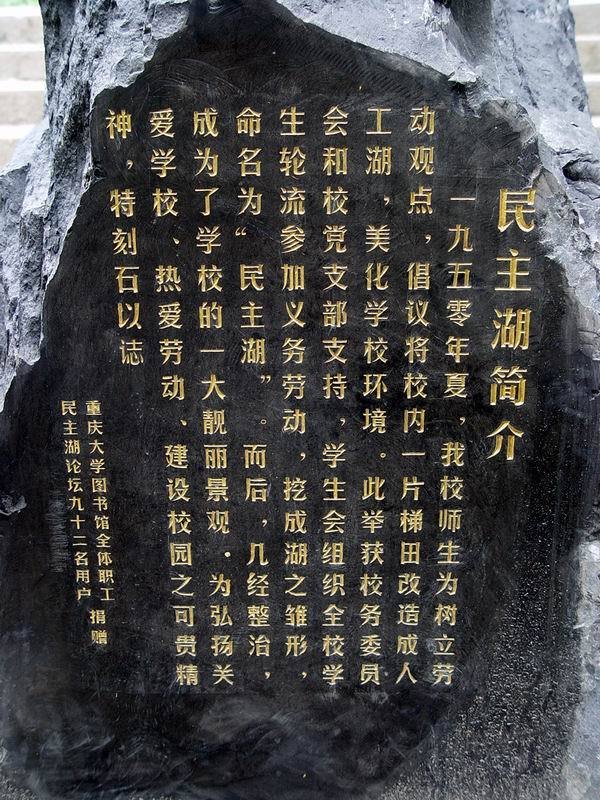 民主湖简介
一九五零年夏，我校师生为树立劳
动观点，倡议将校内一片梯田改造成人
工湖，美化学校环境。此举获校务委员
会和校党支部支持，学生会组织全校学
生轮流参加义务劳动，挖成湖之雏形，
命名为“民主湖”。而后，几经整治，
成为了学校的一大靓丽景观．为弘扬关
爱学校、热爱劳动、建设校园之可贵精
神，特刻石以志
重庆大学图书馆全体职工
民主湖论坛九十二名用户
捐赠